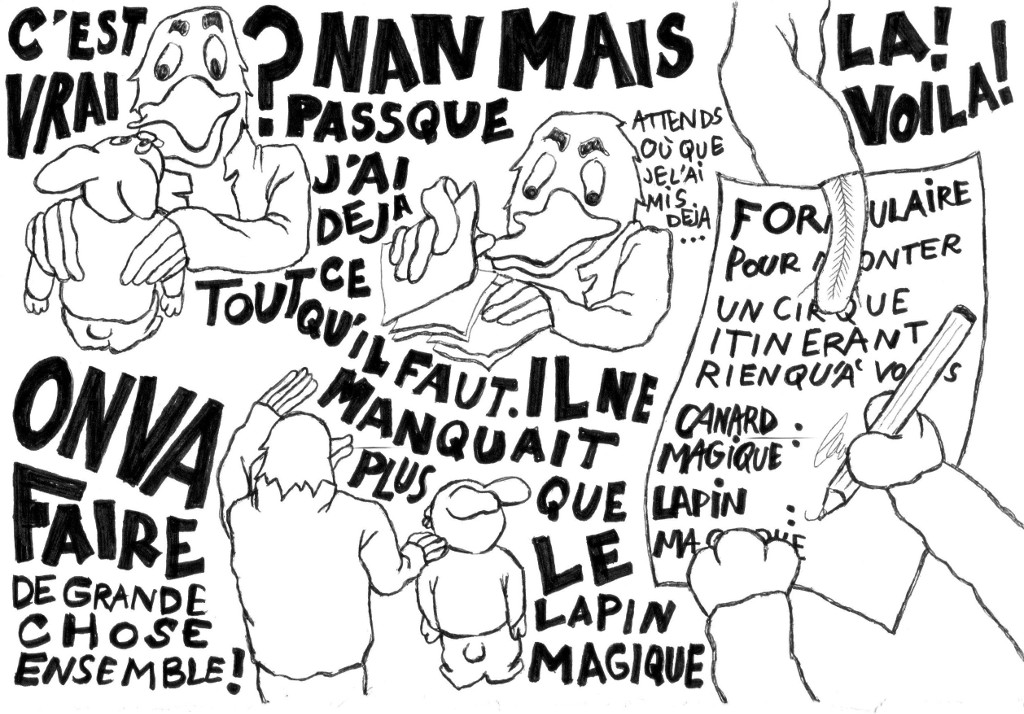 C'EST
VRAI
?
NAN MAIS
PASSQUE
J'AI
DEJA
TOUT CE
QU'IL FAUT. IL NE
MANQUAIT
PLUS
QUE
LE
LAPIN
MAGIQUE
ATTENDS
OÙ QUE
JE L'AI
MIS
DEJA
...
LA!
VOILA!
FORMULAIRE
POUR MONTER
UN CIRQUE
ITINERANT
RIEN QU'À VOUS
CANARD
MAGIQUE :
LAPIN
MAGIQUE :
ON VA
FAIRE
DE GRANDE
CHOSE
ENSEMBLE!